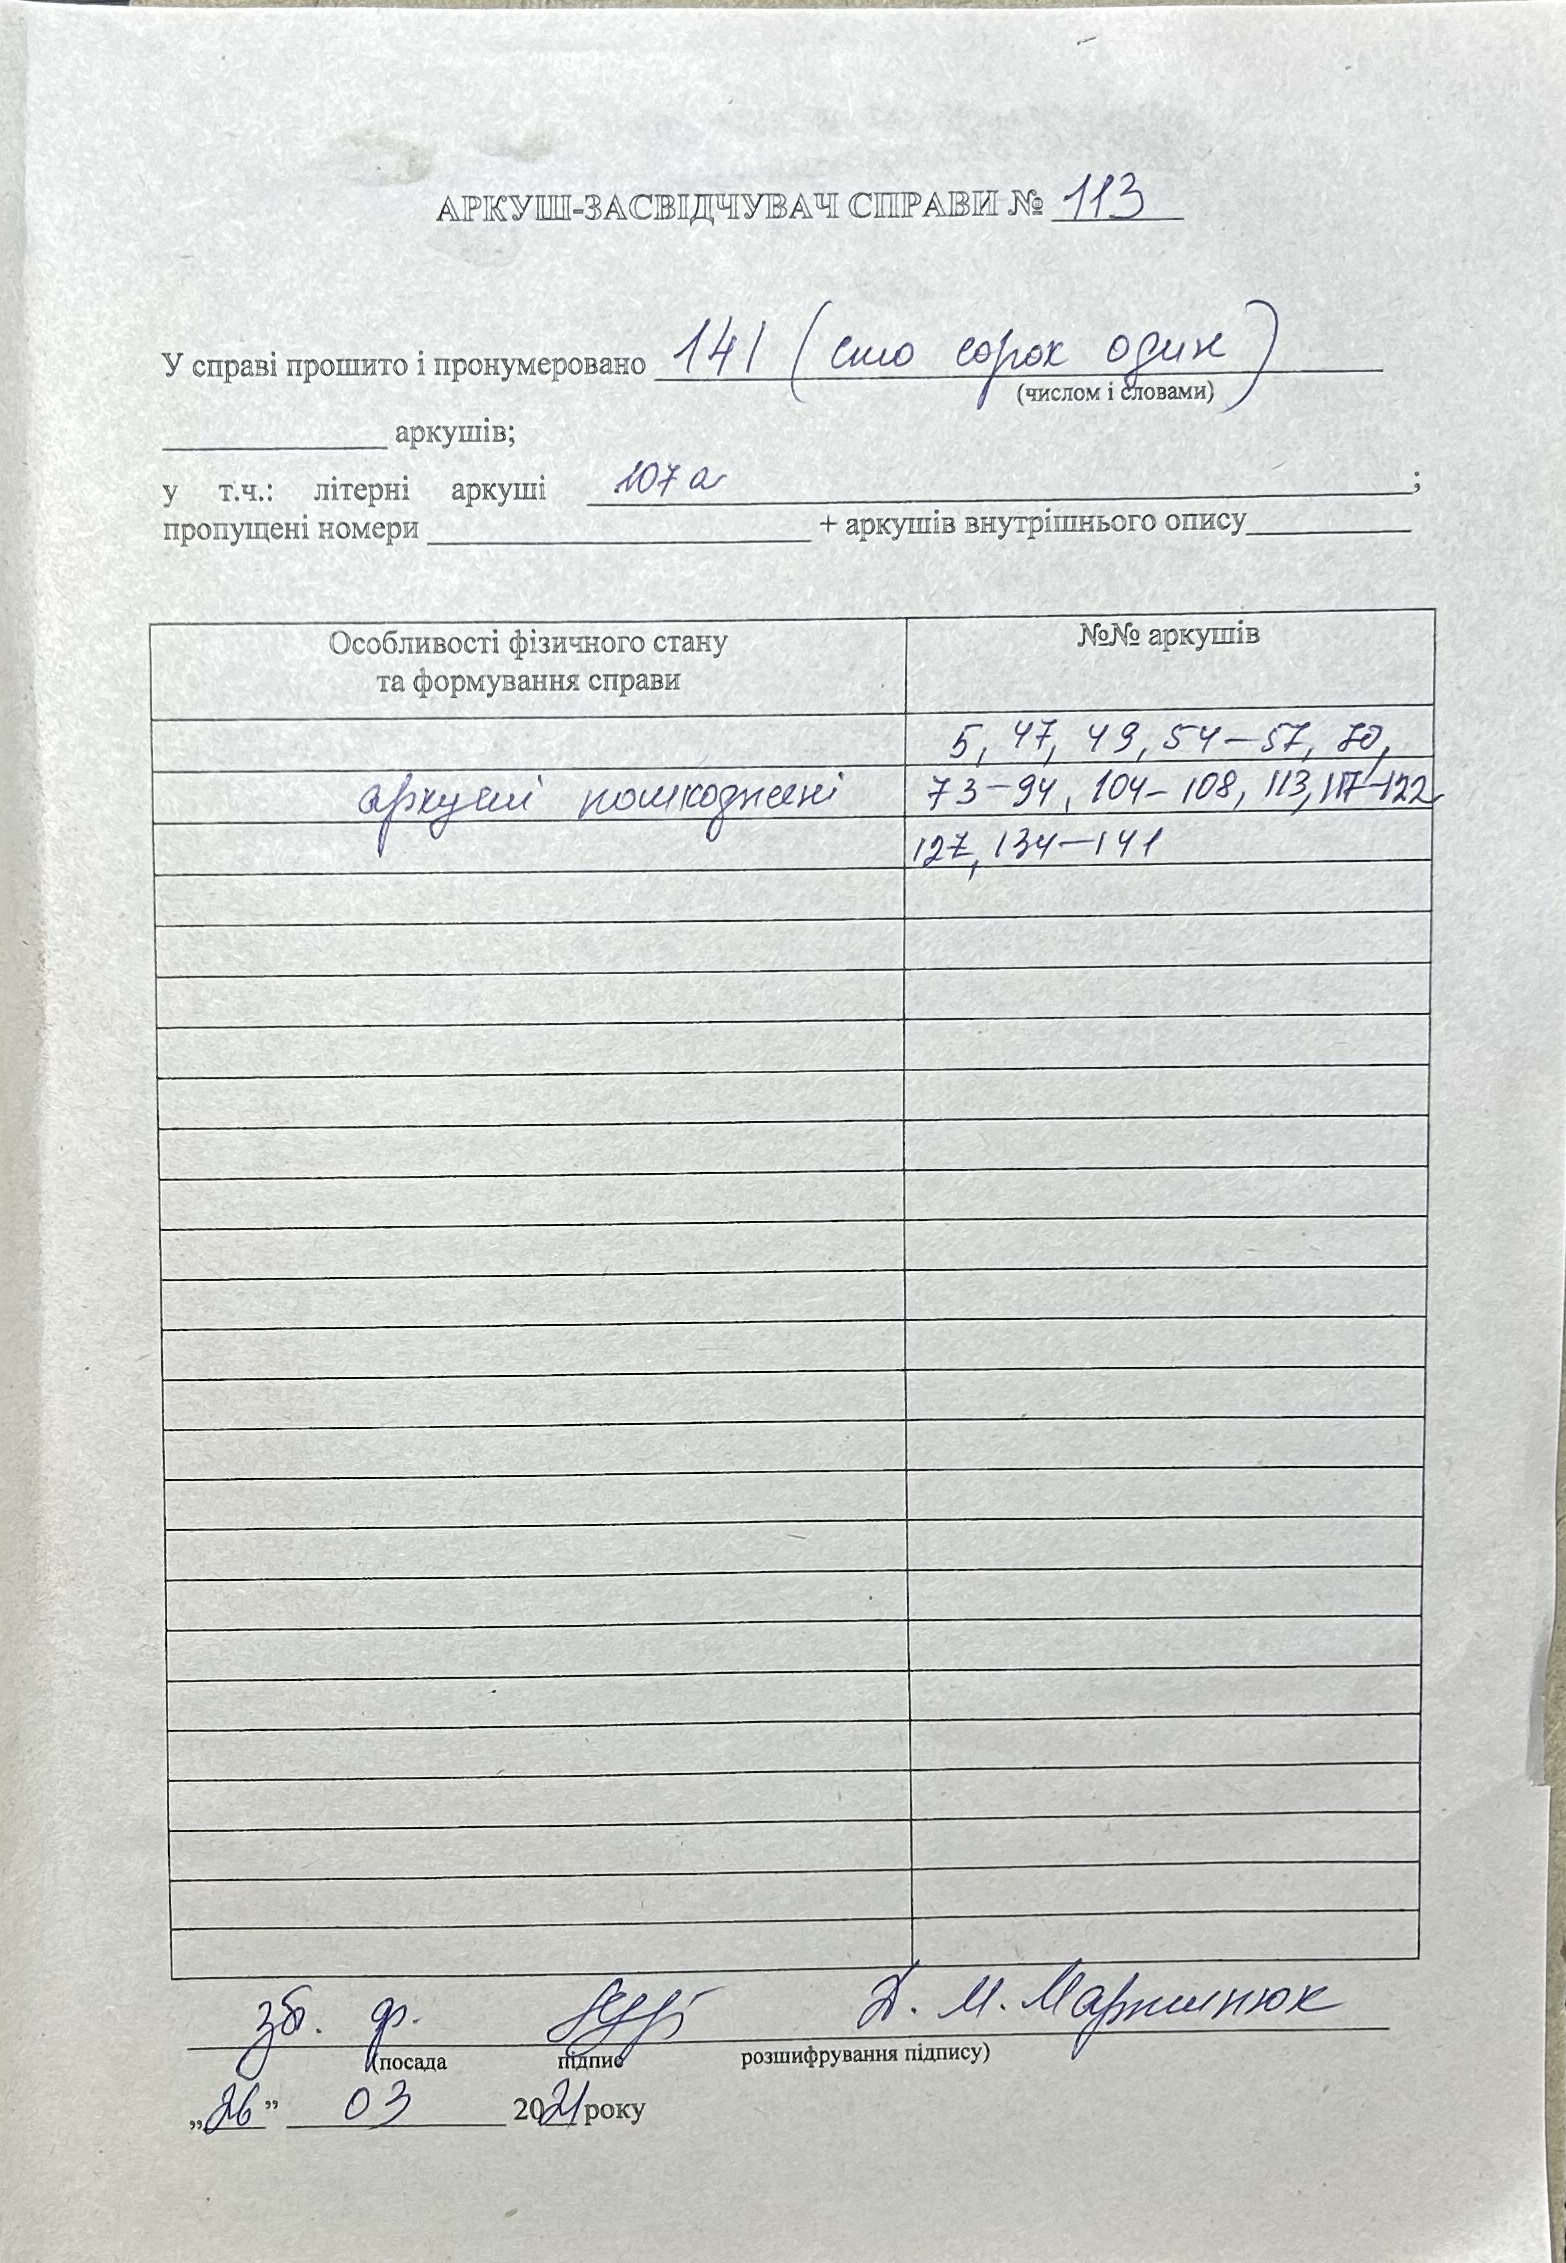 АРКУШ-ЗАСВІДЧУВАЧ СПРАВИ № 113
У справі прошито і пронумеровано 141 (сто сорок один)
(числом і словами)
аркушів;
у т.ч.: літерні аркуші 107а ;
пропущені номери + аркушів внутрішнього опису
Особливості фізичного стану №№ аркушів
та формування справи
5, 47, 49, 54-57, 70,
аркуші пошкоджені 73-94, 104-108, 113, 117-122
127, 134-141
зб. ф. Д. М. Мартинюк
(посада підпис розшифрування підпису)
„26” 03 2021 року